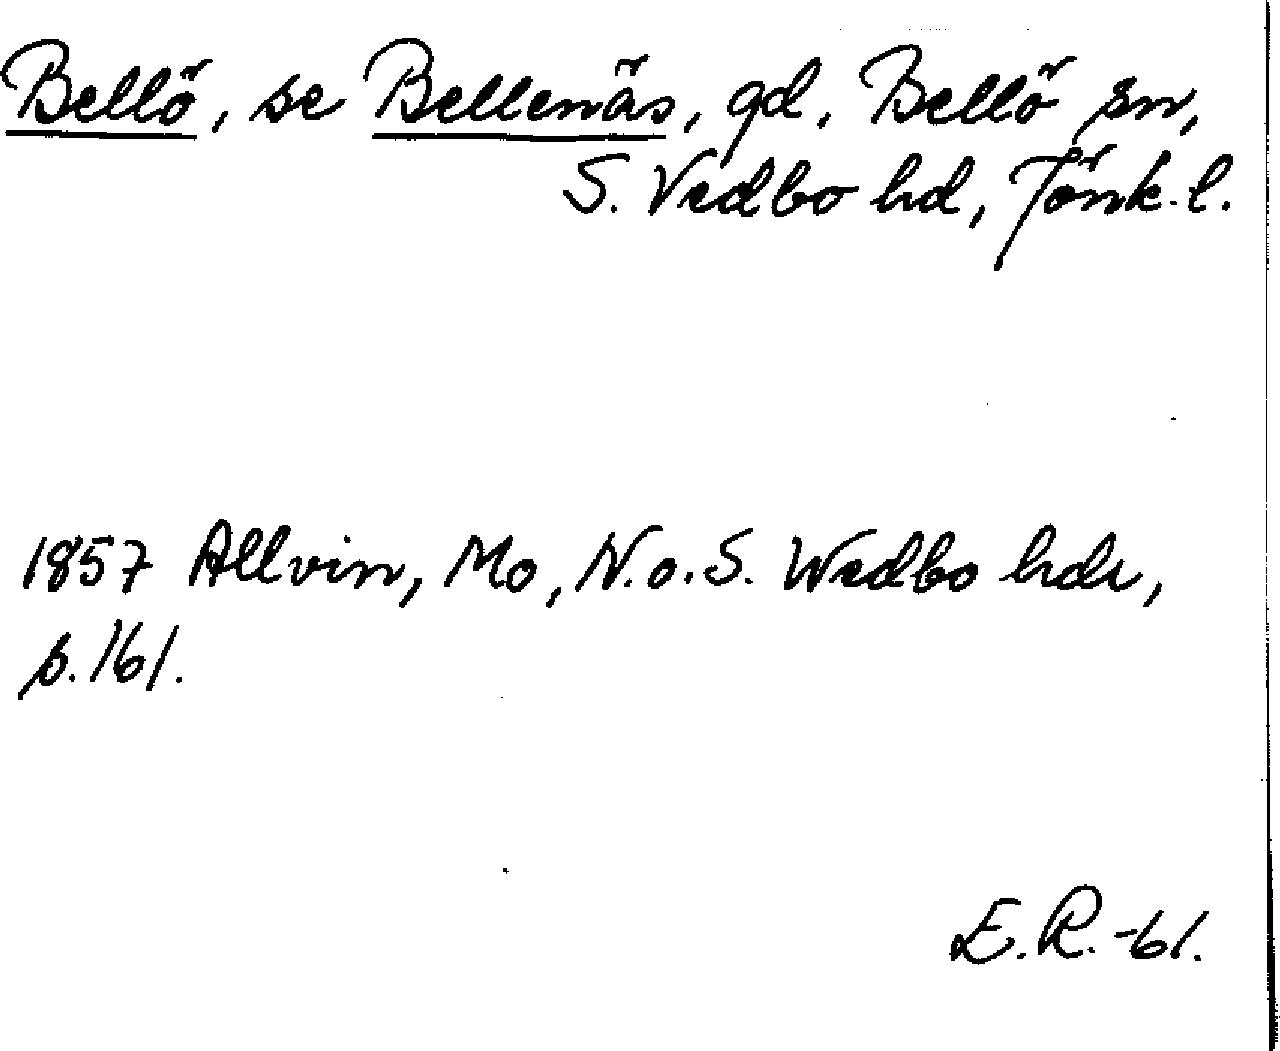 Bellö, se Bellenäs, gd. Bellö sn,
S. Vedbo hd, Jönk. l.
1857 Allvin, Mo, N. o. S. Wedbo hdr,
s. 161.
E. R. -61.